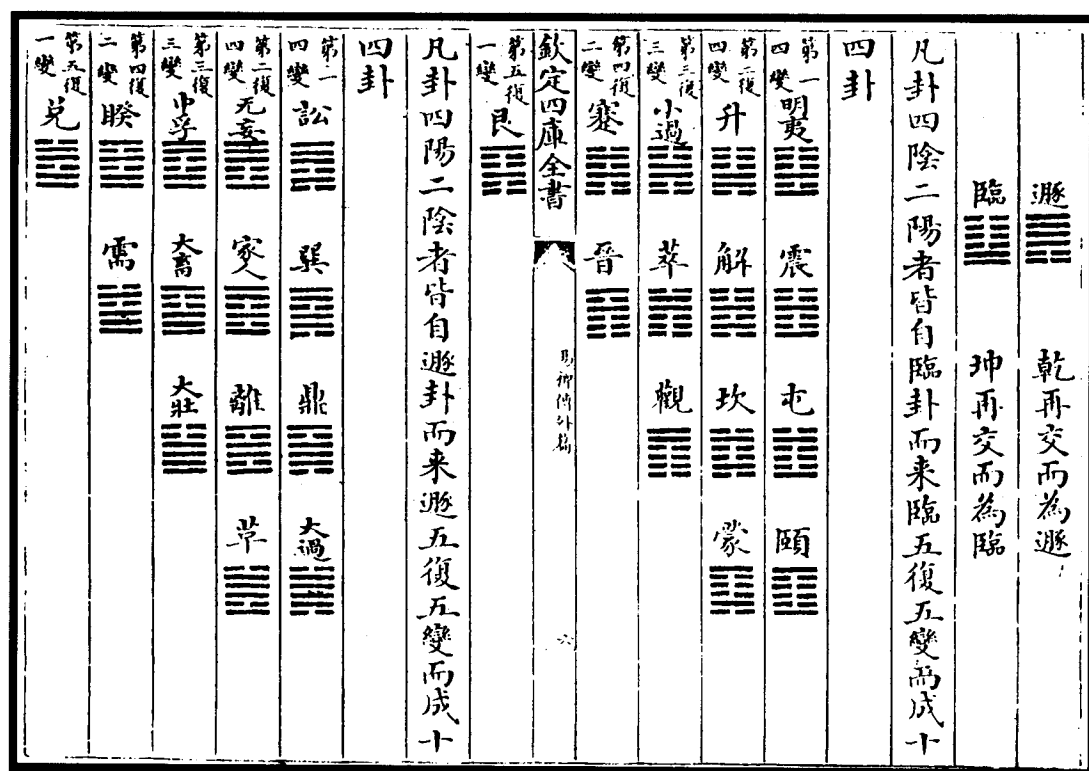 遯 乾再交而為遯
臨 坤再交而為臨
凡卦四陰二陽者皆自臨卦而来臨五復五變而成十
四卦
第一四變 明夷 震 屯 頤
第二復四變 升 解 坎 蒙
第三復三變 小過 萃 觀
第四復二變 蹇 晉
欽定四庫全書 易裨傳外篇 六
第五復一變 艮
凡卦四陽二陰者皆自遯卦而来遯五復五變而成十
四卦
第一四變 訟 巽 鼎 大過
第二復四變 无妄 家人 離 革
第三復三變 中孚 大畜 大壯
第四復二變 睽 需
第五復一變 兑